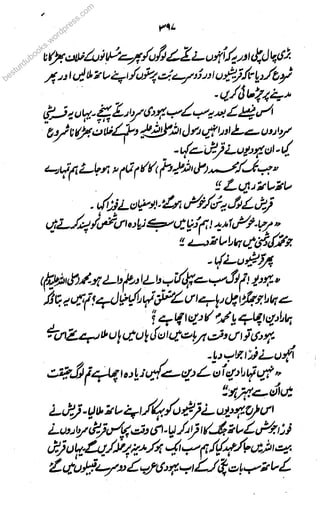 ۳۹۷
بڑی چال چلی اور یہ کہ اُنہوں نے مکّے کے لوگوں کو پھر سے مسلمانوں کے خلاف بھڑکانا
شروع کر دیا تاکہ قریشیوں اور دُوسرے بُت پرستوں کو اپنے ساتھ ملا لیں اور پھر
مدینے پر چڑھائی کریں۔
اس فیصلے کے بعد یہ سب کے سب یہودی سردار مکّے پہنچے۔ یہاں یہ قریشی
سرداروں سے ملے اور انہیں رسول اللہ (صلی اللہ علیہ وسلم) کے خلاف بھڑکانا شروع
کیا۔ ان یہودیوں نے قریش سے کہا۔
”جب تک محمد (صلی اللہ علیہ وسلم) کا کام تمام نہ ہو جائے ہم تمہارے
ساتھ ساتھ رہیں گے“
قریش کے لوگ یہ سُن کر خوش ہو گئے۔ ابوسفیان نے فوراً کہا۔
”مرحبا۔ خوش آمدید! ہم دُنیا میں سب سے زیادہ اس شخص کو پسند کرتے ہیں
جو محمد کی دشمنی میں ہمارا ساتھ دے“
پھر قریش نے کہا۔
”یہودیو! تم لوگ سب سے پہلی کتاب والے اور علم والے ہو محمد (صلی اللہ علیہ وسلم)
سے ہمارا جو جھگڑا چل رہا ہے اس کے متعلق تمہارا کیا خیال ہے؟ تم ہمیں یہ بتاؤ کہ
ہمارا دین اچھا ہے یا محمد کا دین اچھا ہے؟“
یہودی تو اس وقت ہر بات میں ان کی ہاں میں ہاں ملا رہے تھے اس لیے
اُنہوں نے فوراً جواب دیا۔
”نہیں تمہارا دین اُن کے دین سے کہیں زیادہ اچھا ہے تم لوگ حقیقت
میں اُن سے بہتر ہو“
اس طرح یہودیوں نے قریشیوں کو بہکا کر اپنے ساتھ ملا لیا۔ قریش نے
فوراً جوش کے ساتھ جنگ کا اقرار کر لیا۔ اسی وقت پچاس قریشی سرداروں نے
بیت اللہ میں جا کر عہد کیا کہ ہم سب ایک ہو کر مدینہ پر حملہ کریں گے یہاں قریش
کے ساتھ سب بات پکی کر کے اب یہودی عرب کے دوسرے قبیلوں میں گئے
besturdubooks.wordpress.com